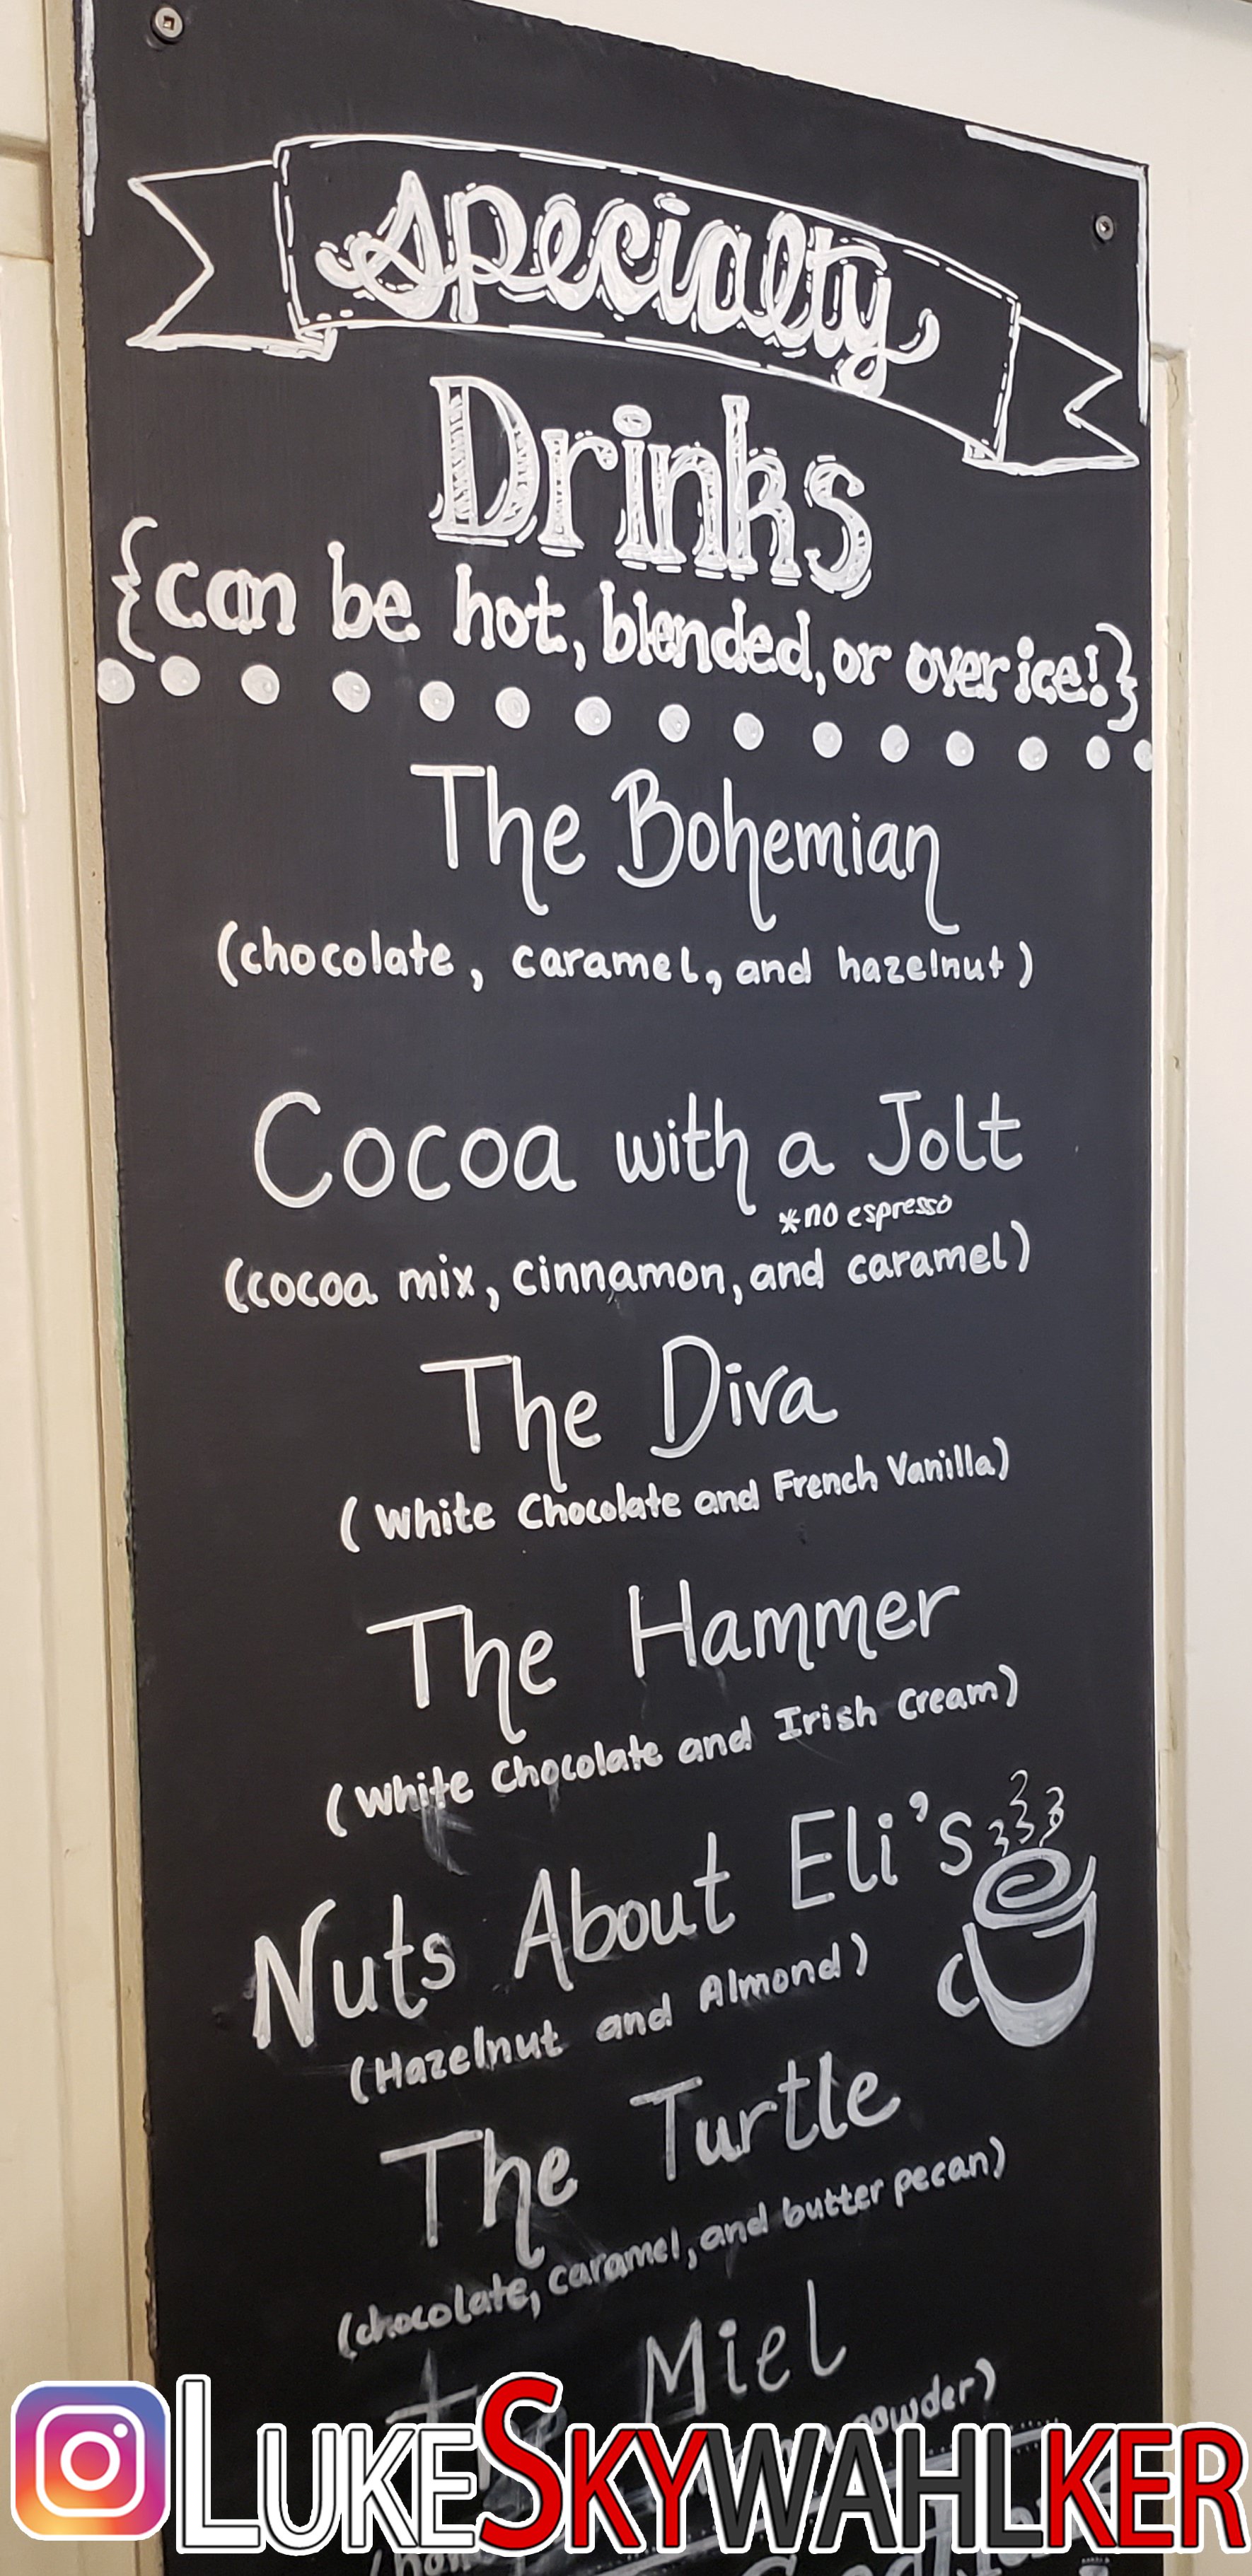 Specialty
Drinks
{can be hot, blended, or over ice!}
The Bohemian
(chocolate, caramel, and hazelnut)
Cocoa with a Jolt
*no espresso
(cocoa mix, cinnamon, and caramel)
The Diva
(White Chocolate and French Vanilla)
The Hammer
(White Chocolate and Irish Cream)
Nuts About Eli's
(Hazelnut and Almond)
The Turtle
(chocolate, caramel, and butter pecan)
The Miel
powder)
LUKESKYWAHLKER